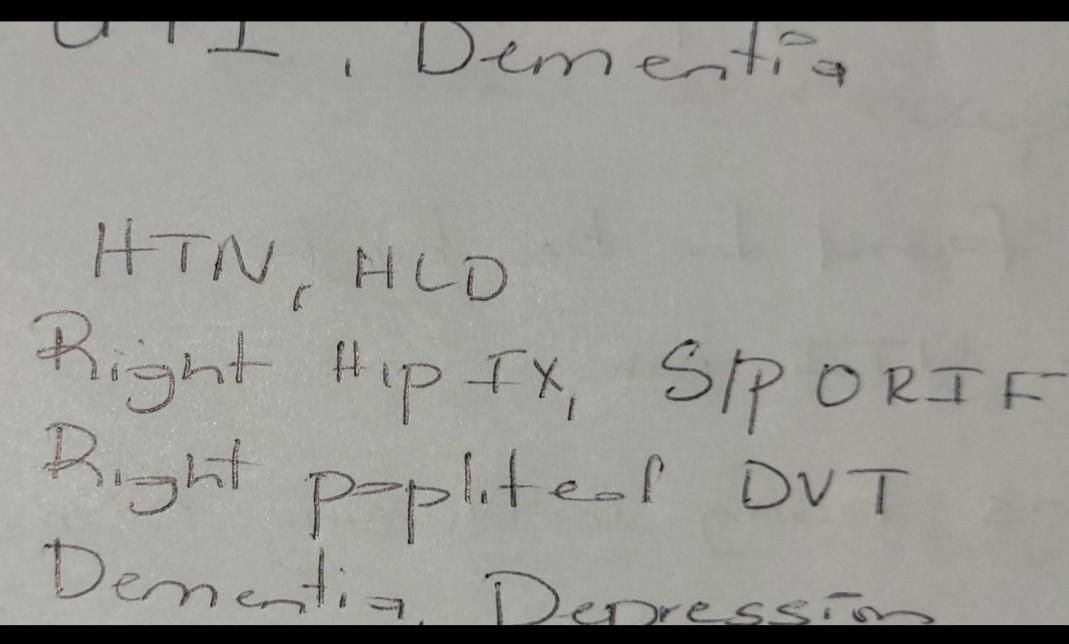 UTI, Dementia
HTN, HLD
Right Hip FX, S/P ORIF
Right popliteal DVT
Dementia, Depression